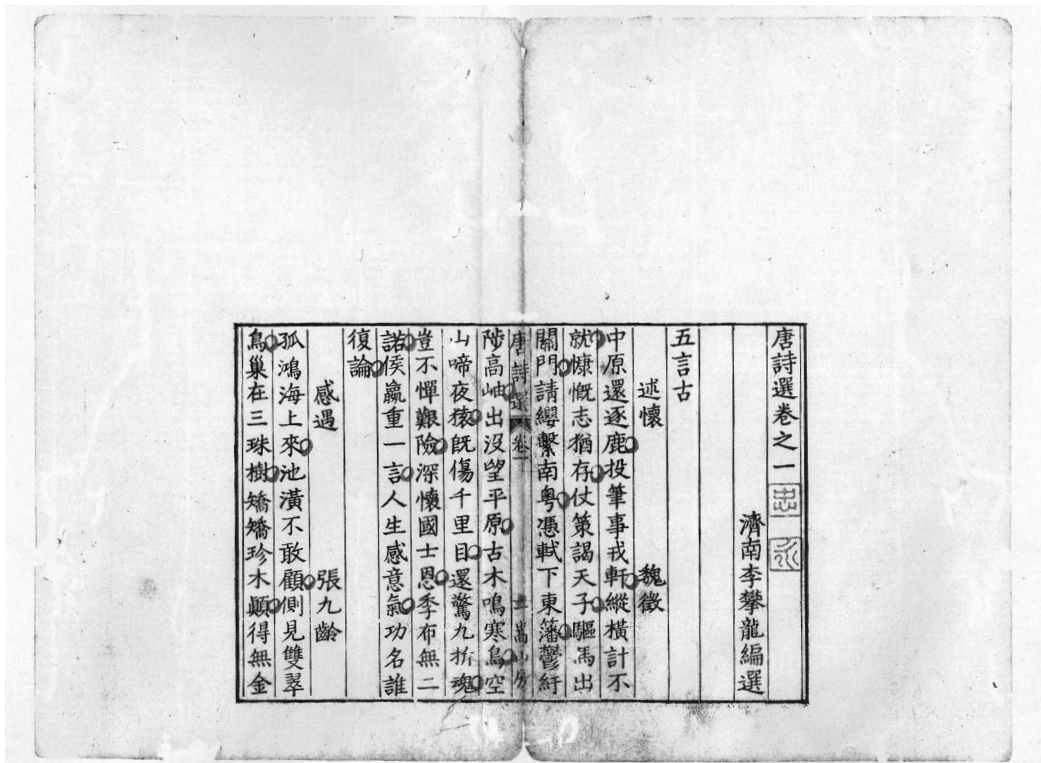 唐詩選卷之一
忠
濟南李攀龍編選
五言古
述懷 魏徵
中原還逐鹿投筆事戎軒縱橫計不
就慷慨志猶存仗策謁天子驅馬出
關門請纓繫南粤憑軾下東藩鬱紆
唐詩選 卷一 嵩山房
陟高岫出沒望平原古木鳴寒鳥空
山啼夜猿旣傷千里目還驚九折魂
豈不憚艱險深懷國士恩季布無二
諾侯嬴重一言人生感意氣功名誰
復論
感遇 張九齡
孤鴻海上來池潢不敢顧側見雙翠
鳥巢在三珠樹矯矯珍木顚得無金